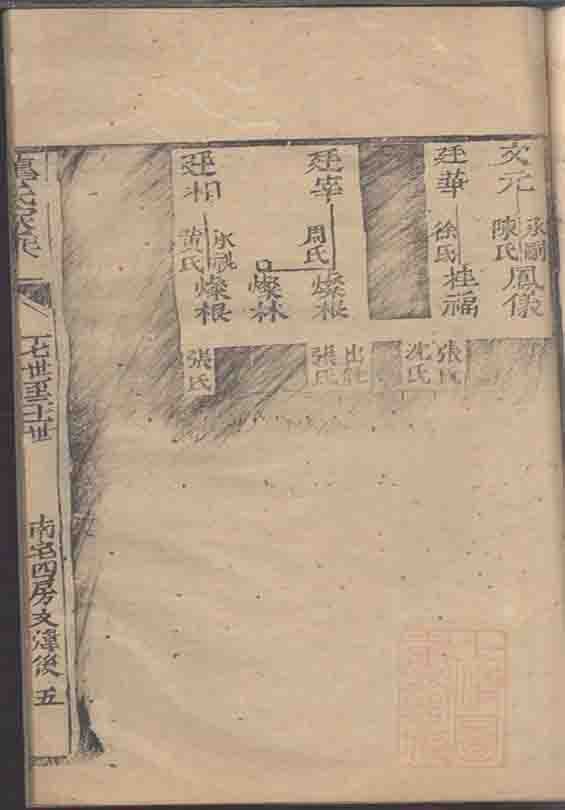 文元
陳氏
承嗣
鳳儀
廷華
徐氏
桂福
張氏
沈氏
廷宰
周氏
燦根
出繼
張氏
燦林
廷相
黃氏
承祧
燦根
張氏
七世至十一世
南宅四房文煒後 五